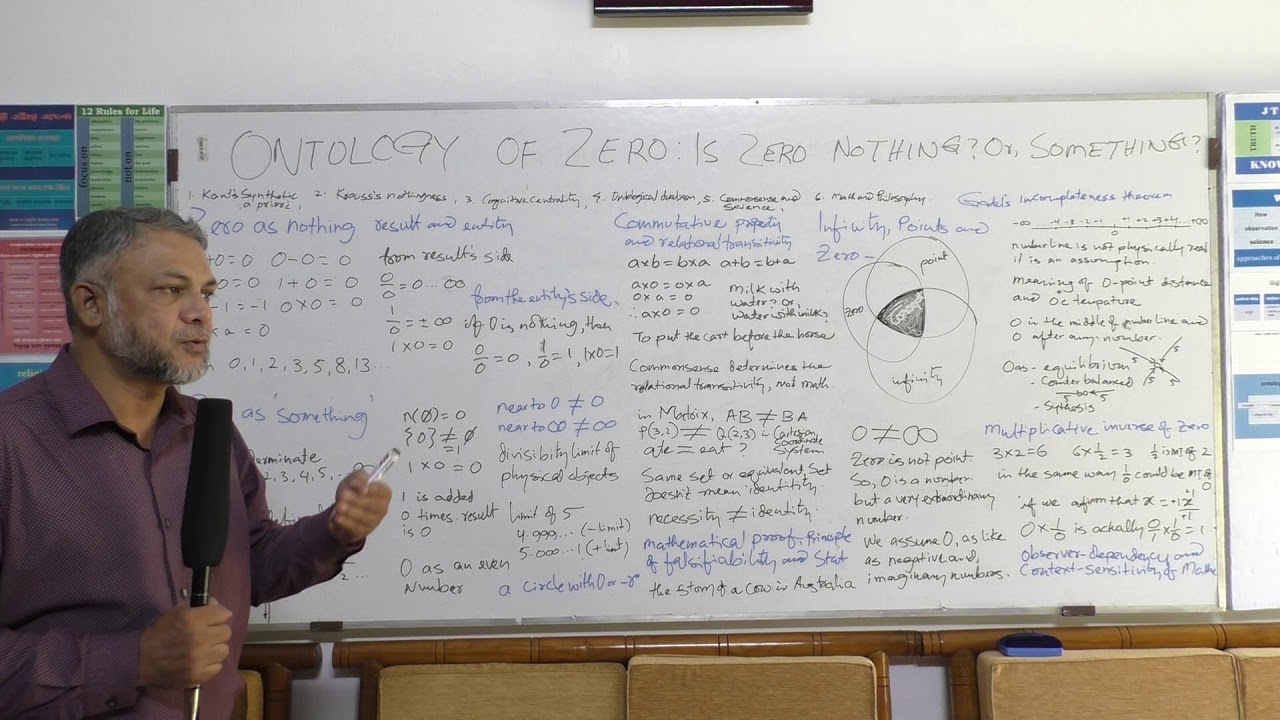 12 Rules for Life
focus on
not on
ONTOLOGY OF ZERO: IS ZERO NOTHING? Or, SOMETHING?
1. Kant's Synthetic a priori 2. Krauss's nothingness 3. Cognitive centrality, 4. Ontological dualism, 5. Commonsense and Science, 6. Math and Philosophy.
Godel's incompleteness theorem
Zero as nothing result and entity
+0=0 0-0=0 from results side
=0 1+0=0 0/0=0...∞
-1=-1 0x0=0 from the entity's side.
1/0=±∞ if 0 is nothing, then
x a=0 1x0=0 0/0=0, 1/0=1, 1x0=1
0, 1, 2, 3, 5, 8, 13...
as 'something'
n(∅)=0
{0}≠∅
=1
1x0=0
1 is added
0 times. result
is 0
0 as an even
Number
near to 0 ≠ 0
near to ∞ ≠ ∞
divisibility limit of
physical objects
limit of 5
4.999... (-limit)
5.000...1 (+limit)
a circle with 0 or -r°
2, 3, 4, 5, ... ∞
Commutative property
and relational transitivity
axb=bxa a+b=b+a
ax0=0xa
0xa=0
∴ ax0=0
Milk with
water? or,
Water with milk?
To put the cart before the horse
Commonsense determines the
relational transitivity, not math.
in Matrix, AB ≠ BA
P(3,2) ≠ Q(2,3) in Cartesian coordinate System
ate = eat ?
Same set or equivalent set
doesn't mean identity.
necessity ≠ identity.
mathematical proof, Principle
of falsifiability and Stat
the story of a Cow in Australia
Infinity, Points and
Zero-
point
zero
infinity
0 ≠ ∞
Zero is not point.
So, 0 is a number.
but a very extraordinary
number.
We assume 0, as like
as negative and,
imaginary numbers.
-∞ -4 -3 -2 -1 0 +1 +2 +3 +4 +∞
number line is not physically real
it is an assumption.
meaning of 0-point distance
and 0c tempature
0 in the middle of number line and
0 after any number.
0 as - equilibrium
- Counter balanced
5 → 0 ← 5
- Synthesis
5 5
5 5
Multiplicative inverse of Zero
3x2=6 6x1/2=3 1/2 is MI of 2
in the same way 1/0 could be MI of 0
if we afirm that x = +1 x/+1
0x1/0 is actually 0/1 x 1/0 = 1
observer-dependency and
Context-sensitivity of Mathe
JT
TRUTH
KNOW
How
observation
science
approaches of